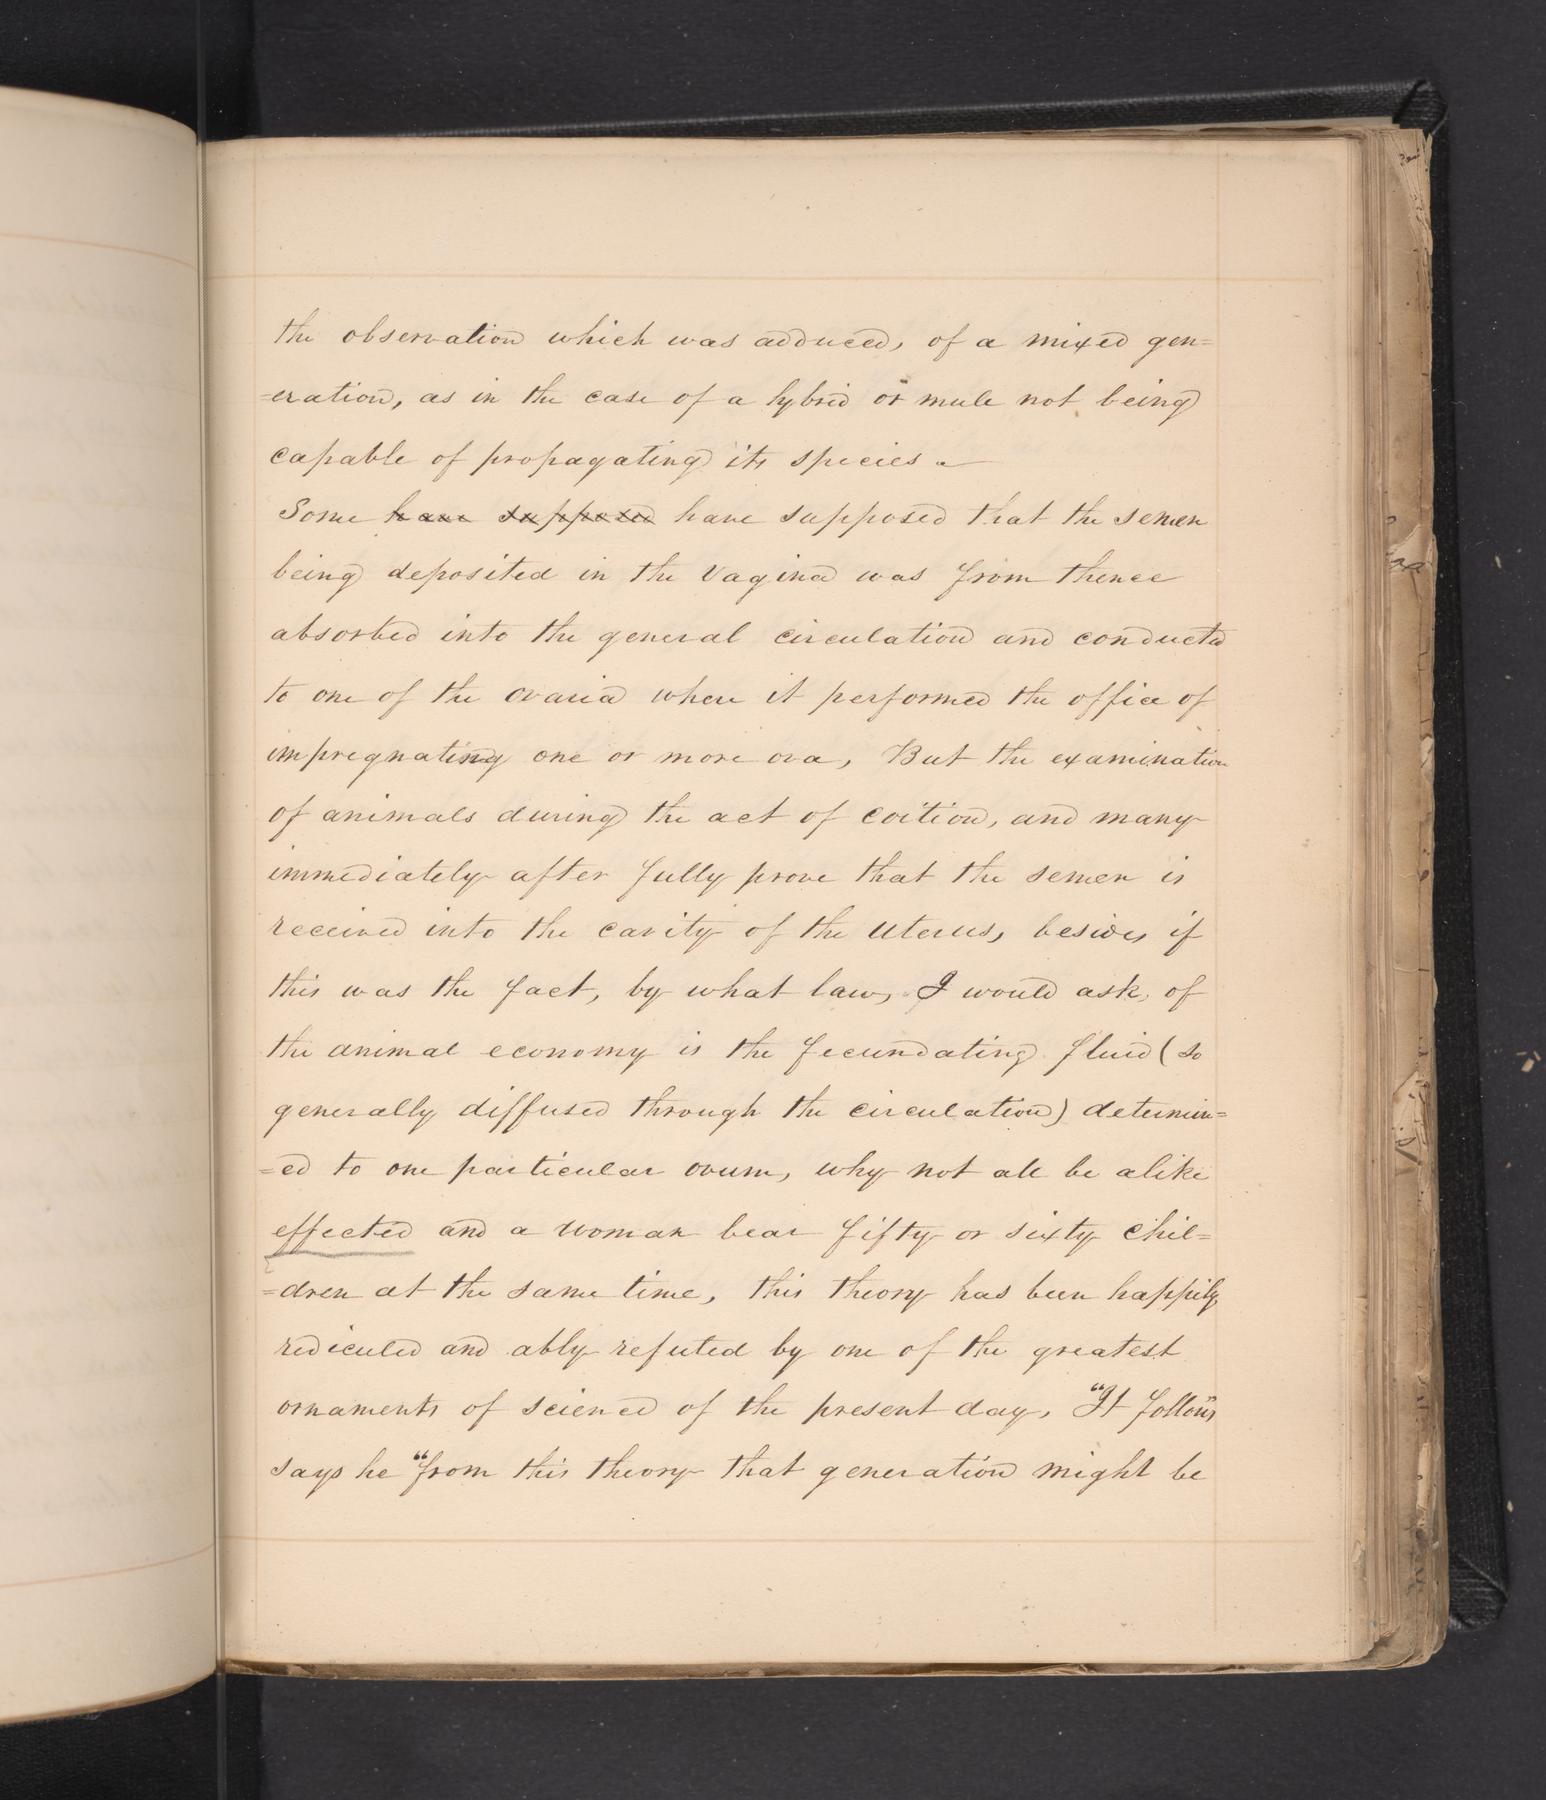 the observation which was adduced, of a mixed gen=
=eration, as in the case of a hybrid or mule not being
capable of propagating its species.
Some have supposed have supposed that the semen
being deposited in the Vagina was from thence
absorbed into the general circulation and conducted
to one of the ovaria where it performed the office of
impregnating one or more ova, But the examination
of animals during the act of coition, and many
immediately after fully prove that the semen is
received into the cavity of the uterus, besides, if
this was the fact, by what law, I would ask, of
the animal economy is the fecundating fluid (so
generally diffused through the circulation) determin=
=ed to one particular ovum, why not all be alike
effected and a woman bear fifty or sixty chil=
=dren at the same time, this theory has been happily
rediculed and ably refuted by one of the greatest
ornaments of science of the present day, "It follows"
says he "from this theory that generation might be